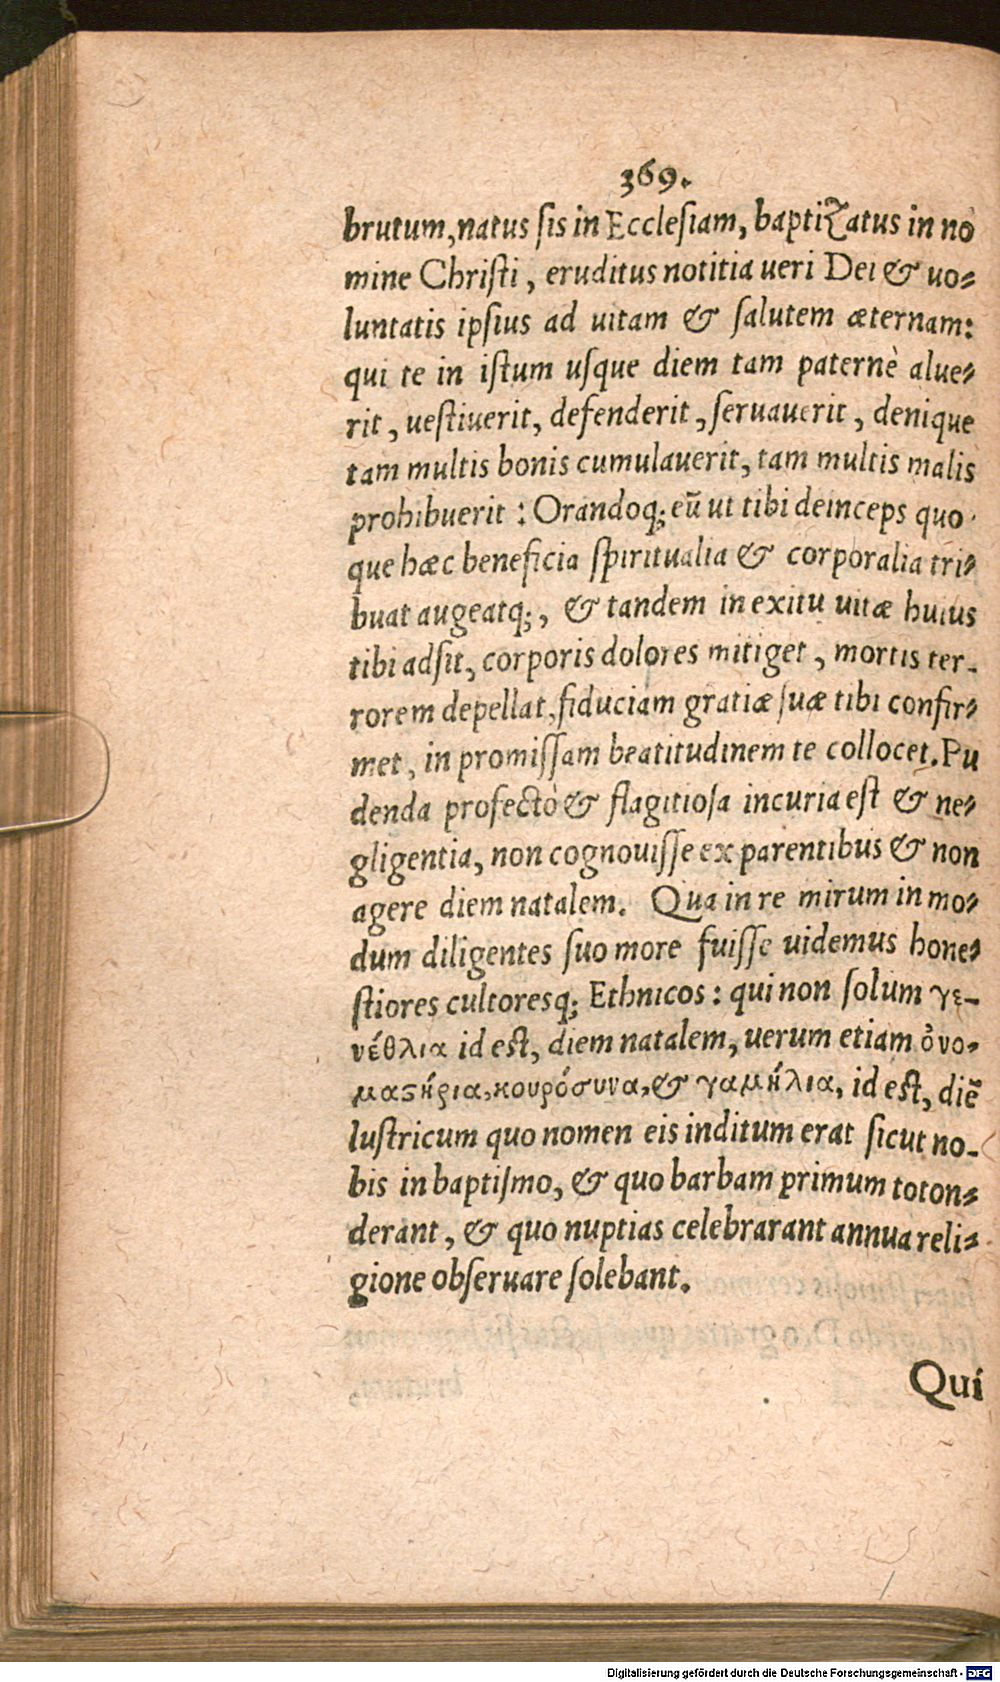 369.
brutum, natus sis in Ecclesiam, baptizatus in no
mine Christi, eruditus notitia ueri Dei & uo-
luntatis ipsius ad uitam & salutem æternam:
qui te in istum usque diem tam paternè alue-
rit, uestiuerit, defenderit, seruauerit, denique
tam multis bonis cumulauerit, tam multis malis
prohibuerit: Orandoq; eũ ut tibi deinceps quo
que hæc beneficia spiritualia & corporalia tri-
buat augeatq;, & tandem in exitu uitæ huius
tibi adsit, corporis dolores mitiget, mortis ter-
rorem depellat, fiduciam gratiæ suæ tibi confir-
met, in promissam beatitudinem te collocet. Pu
denda profectò & flagitiosa incuria est & ne-
gligentia, non cognouisse ex parentibus & non
agere diem natalem. Qua in re mirum in mo-
dum diligentes suo more fuisse uidemus hone-
stiores cultoresq; Ethnicos: qui non solum γε-
νέθλια id est, diem natalem, uerum etiam ὀνο-
μαςήρια, κουρόσυνα, & γαμήλια, id est, diẽ
lustricum quo nomen eis inditum erat sicut no-
bis in baptismo, & quo barbam primum toton-
derant, & quo nuptias celebrarant annua reli-
gione obseruare solebant.
Qui
Digitalisierung gefördert durch die Deutsche Forschungsgemeinschaft - DFG